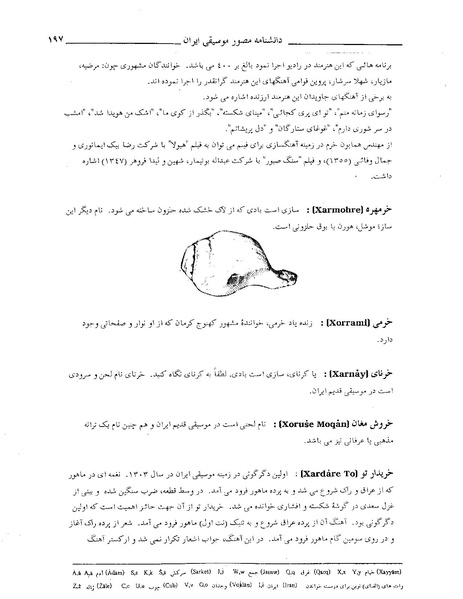 دانشنامه مصور موسیقی ایران ۱۹۷
برنامه هائی که این هنرمند در رادیو اجرا نمود بالغ بر ۴۰۰ می باشد. خوانندگان مشهوری چون: مرضیه،
مازیار، شهلا سرشار، پروین قوامی آهنگهای این هنرمند گرانقدر را اجرا نموده اند.
به برخی از آهنگهای جاویدان این هنرمند ارزنده اشاره می شود.
"رسوای زمانه منم"، "تو ای پری کجائی"، "مینای شکسته"، "بگذر از کوی ما"، "اشک من هویدا شد"، "امشب
در سر شوری دارم"، "غوغای ستارگان" و "دل پریشانم".
از مهندس همایون خرم در زمینه آهنگسازی برای فیلم می توان به فیلم "هیولا" با شرکت رضا بیک ایمانوردی و
جمال وفائی (۱۳۵۵)، و فیلم "سنگ صبور" با شرکت عبداله بوتیمار، شهین و لیدا فروهر (۱۳۴۷) اشاره
داشت.
خرمهره (Xarmohre) : سازی است بادی که از لاک خشک شده حلزون ساخته می شود. نام دیگر این
سازۀ موشل، هورن یا بوق حلزونی است.
خرمی (Xorrami) : زنده یاد خرمی، خوانندۀ مشهور کهنوج کرمان که از او نوار و صفحاتی وجود
دارد.
خرنای (Xarnây) : یا کرنای، سازی است بادی. لطفاً به کرنای نگاه کنید. خرنای نام لحن و سرودی
است در موسیقی قدیم ایران.
خروش مغان (Xoruše Moqân) : نام لحنی است در موسیقی قدیم ایران و هم چنین نام یک ترانه
مذهبی یا عرفانی نیز می باشد.
خریدار تو (Xardâre To) : اولین دگرگونی در زمینه موسیقی ایران در سال ۱۳۰۳. نغمه ای در ماهور
که از عراق و راک شروع می شد و به پرده ماهور فرود می آمد. در وسط قطعه، ضرب سنگین شده و بیتی از
غزل سعدی در گرشۀ شکسته و افشاری خوانده می شد. خریدار تو از آن جهت حائز اهمیت است که اولین
دگرگونی بود. آهنگ آن از پرده عراق شروع و به تنیک (نت اول) ماهور فرود می آمد. شعر از پرده راک آغاز
و در روی سومین گام ماهور فرود می آمد. در این آهنگ، جواب اشعار تکرار نمی شد و ارکستر آهنگ